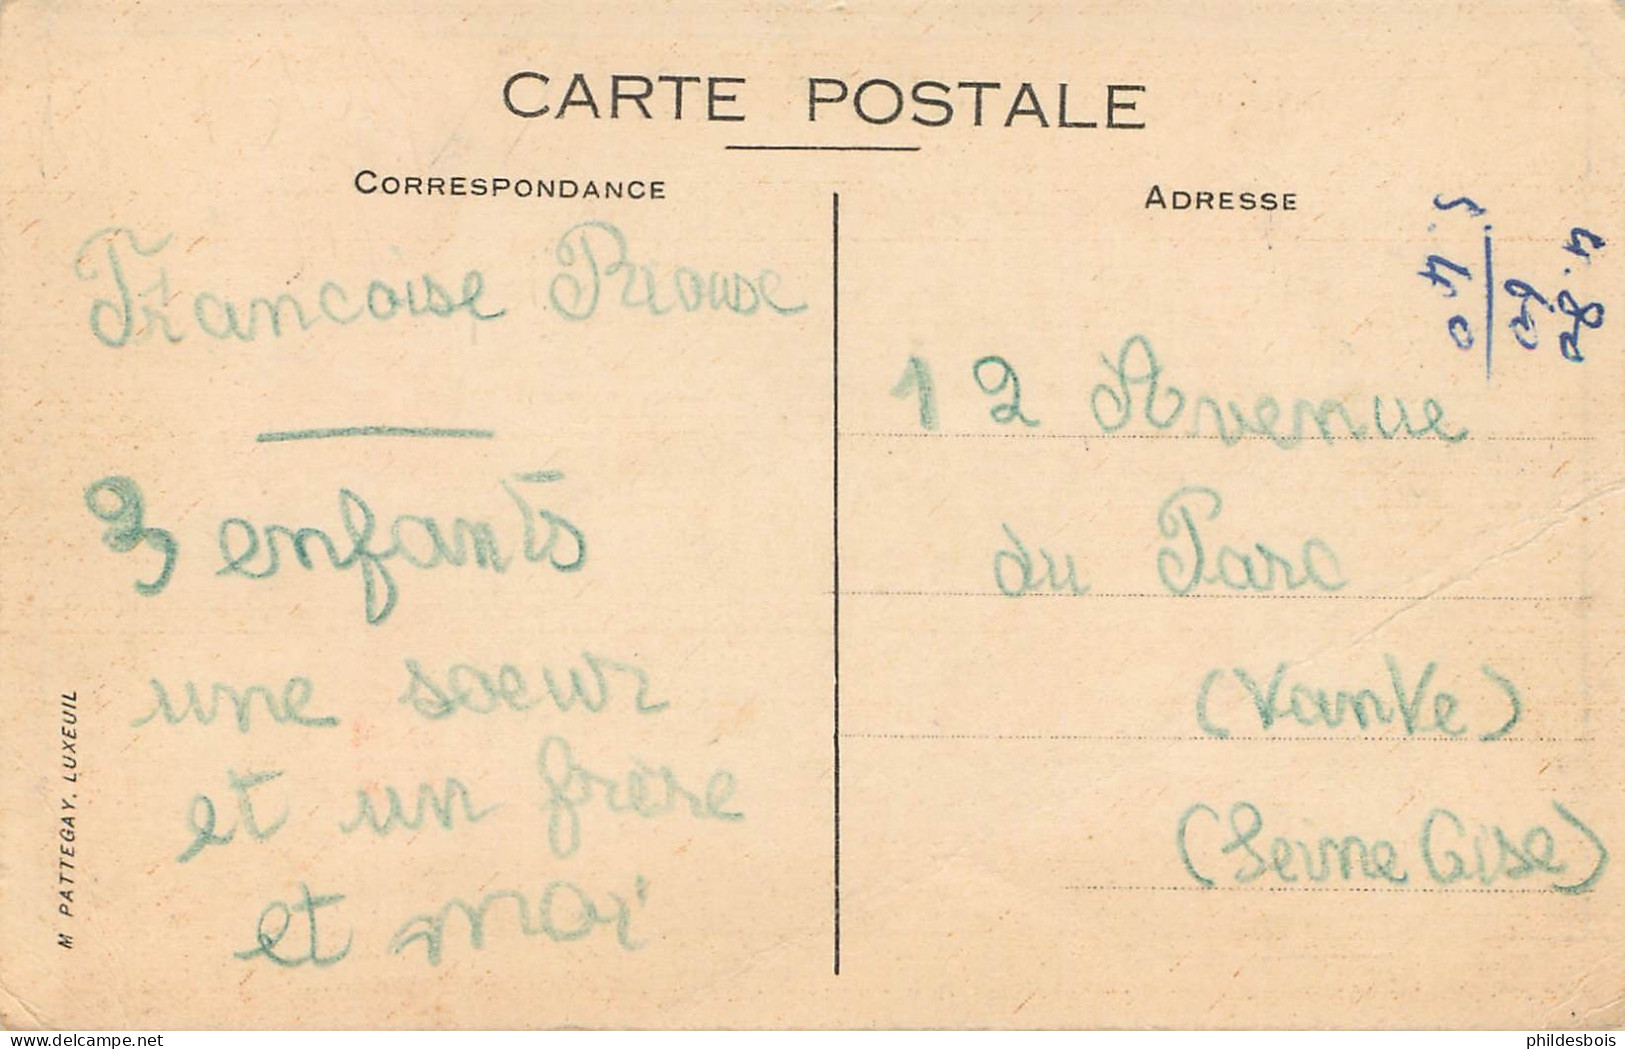 CARTE POSTALE
CORRESPONDANCE
ADRESSE
Francoise Priouse
3 enfants
une soeur
et un frère
et moi
12 Avenue
du Parc
(Vanve)
(Seine Oise)
M PATTEGAY, LUXEUIL
phildesbois
delcampe.net